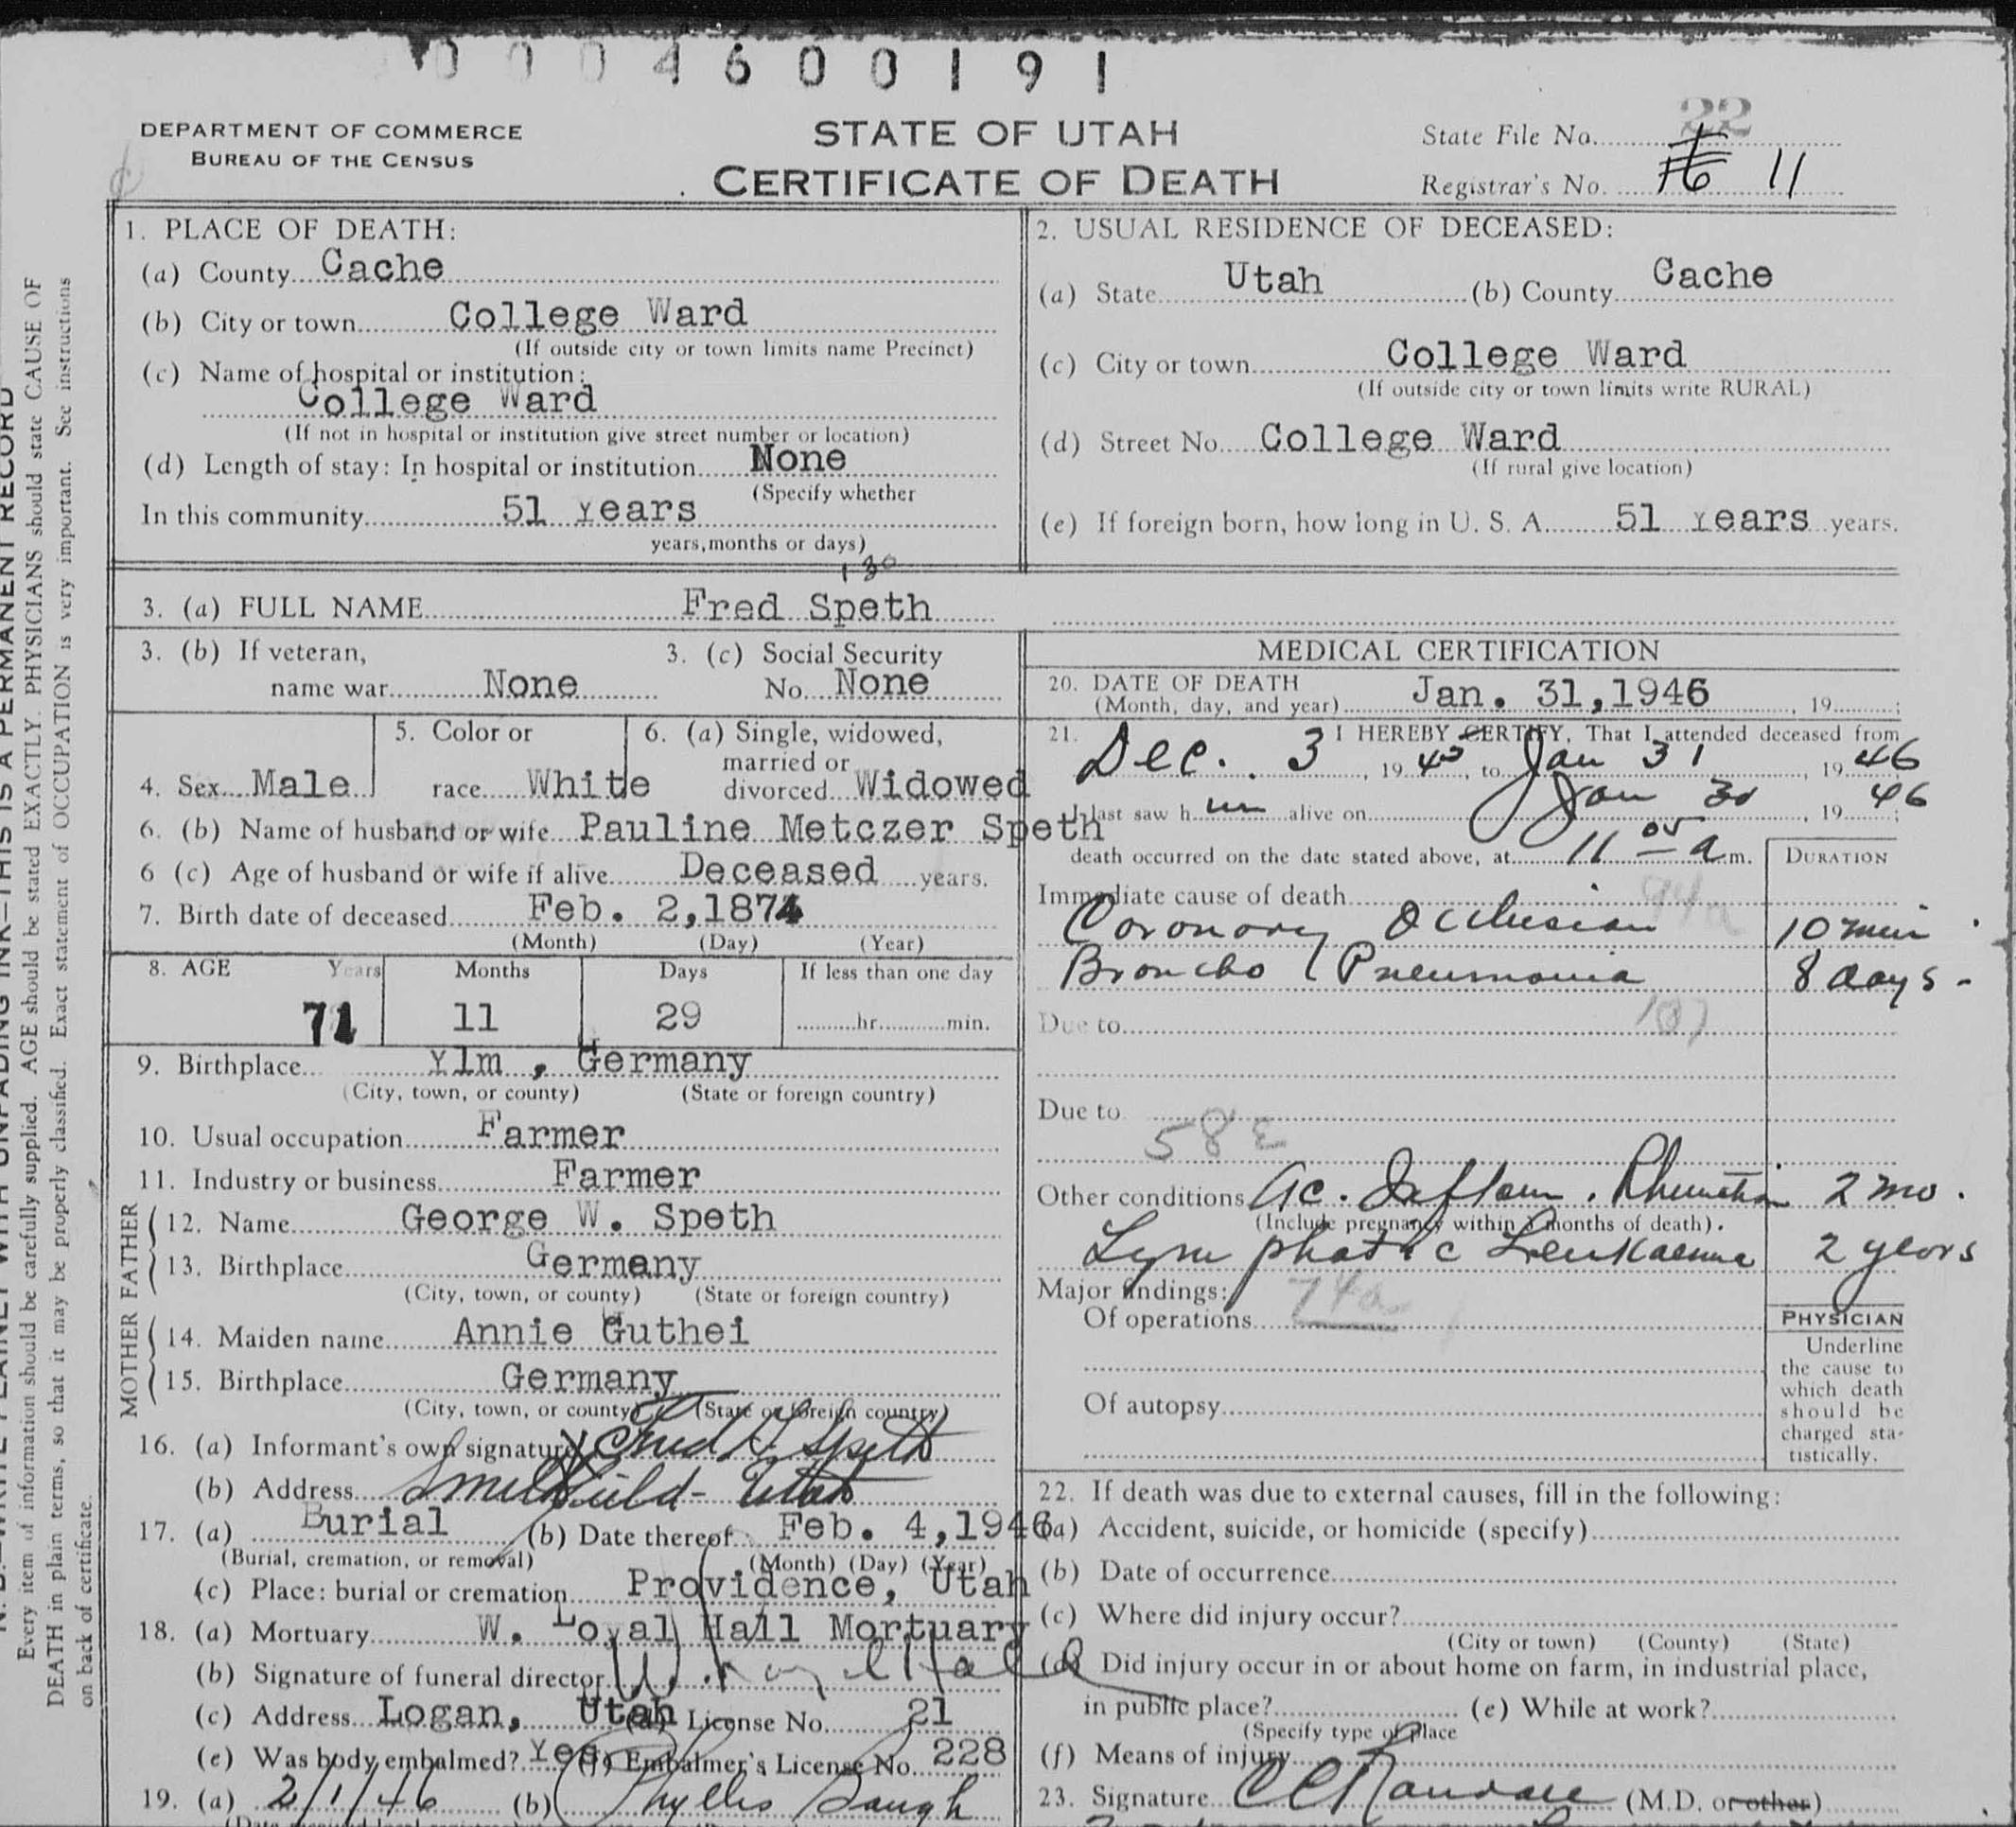 0004600191
DEPARTMENT OF COMMERCE
BUREAU OF THE CENSUS
STATE OF UTAH
CERTIFICATE OF DEATH
State File No. 22
Registrar's No. 16 11
N. B.—WRITE PLAINLY WITH UNFADING INK—THIS IS A PERMANENT RECORD
Every item of information should be carefully supplied. AGE should be stated EXACTLY. PHYSICIANS should state CAUSE OF
DEATH in plain terms, so that it may be properly classified. Exact statement of OCCUPATION is very important. See instructions
on back of certificate.
1. PLACE OF DEATH:
(a) County Cache
(b) City or town College Ward
(If outside city or town limits name Precinct)
(c) Name of hospital or institution:
College Ward
(If not in hospital or institution give street number or location)
(d) Length of stay: In hospital or institution None
(Specify whether
In this community 51 Years
years, months or days)
2. USUAL RESIDENCE OF DECEASED:
(a) State Utah (b) County Cache
(c) City or town College Ward
(If outside city or town limits write RURAL)
(d) Street No. College Ward
(If rural give location)
(e) If foreign born, how long in U. S. A. 51 Years years.
130
3. (a) FULL NAME Fred Speth
3. (b) If veteran, 3. (c) Social Security
name war None No. None
5. Color or 6. (a) Single, widowed,
married or
4. Sex Male race White divorced Widowed
6. (b) Name of husband or wife Pauline Metczer Speth
6 (c) Age of husband or wife if alive Deceased years.
7. Birth date of deceased Feb. 2,1874
(Month) (Day) (Year)
8. AGE Years Months Days If less than one day
71 11 29 hr. min.
9. Birthplace Ylm , Germany
(City, town, or county) (State or foreign country)
10. Usual occupation Farmer
11. Industry or business Farmer
MOTHER FATHER
12. Name George W. Speth
13. Birthplace Germany
(City, town, or county) (State or foreign country)
14. Maiden name Annie Guthei
15. Birthplace Germany
(City, town, or county) (State or foreign country)
16. (a) Informant's own signature X Fred H Speth
(b) Address Smithfield - Utah
17. (a) Burial (b) Date thereof Feb. 4,1946
(Burial, cremation, or removal) (Month) (Day) (Year)
(c) Place: burial or cremation Providence, Utah
18. (a) Mortuary W. Loyal Hall Mortuary
(b) Signature of funeral director W. Loyal Hall
(c) Address Logan, Utah (d) License No. 21
(e) Was body embalmed? Yes (f) Embalmer's License No. 228
19. (a) 2/1/46 (b) Phyllis Baugh
MEDICAL CERTIFICATION
20. DATE OF DEATH
(Month, day, and year) Jan. 31,1946, 19 ;
21. I HEREBY CERTIFY, That I attended deceased from
Dec. 3, 1945, to Jan 31, 1946
I last saw h im alive on Jan 30, 1946;
death occurred on the date stated above, at 11 05 a m.
DURATION
Immediate cause of death 94a
Coronary Occlusion 10 min
Broncho Pneumonia 8 days -
Due to 107
Due to
58 E
Other conditions Ac. Inflam. Rheumatism 2 mo.
(Include pregnancy within 3 months of death).
Lymphatic Leukaemia 2 years
Major findings: 74a
Of operations
Of autopsy
PHYSICIAN
Underline
the cause to
which death
should be
charged sta-
tistically.
22. If death was due to external causes, fill in the following:
(a) Accident, suicide, or homicide (specify)
(b) Date of occurrence
(c) Where did injury occur?
(City or town) (County) (State)
(d) Did injury occur in or about home on farm, in industrial place,
in public place? (e) While at work?
(Specify type of place
(f) Means of injury
23. Signature C C Randall (M.D. or other)